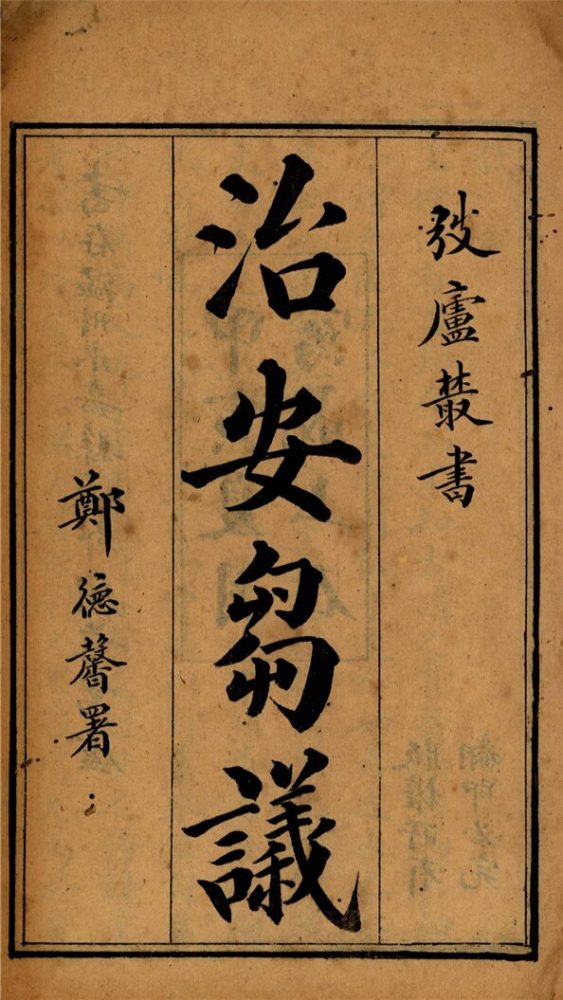 弢廬叢書
治安芻議
鄭德馨署